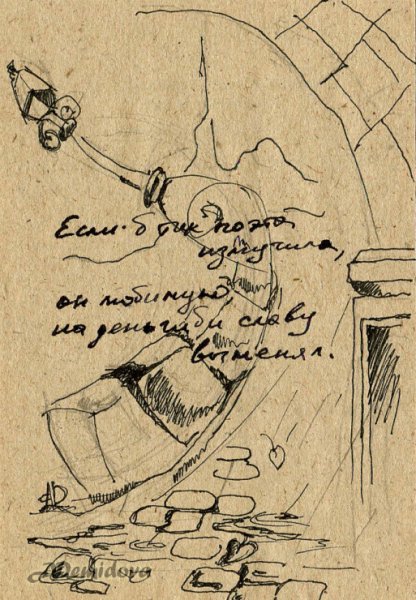 Если б так поэта
измучила,
он любимую
на деньги б и славу
выменял.
Demidova